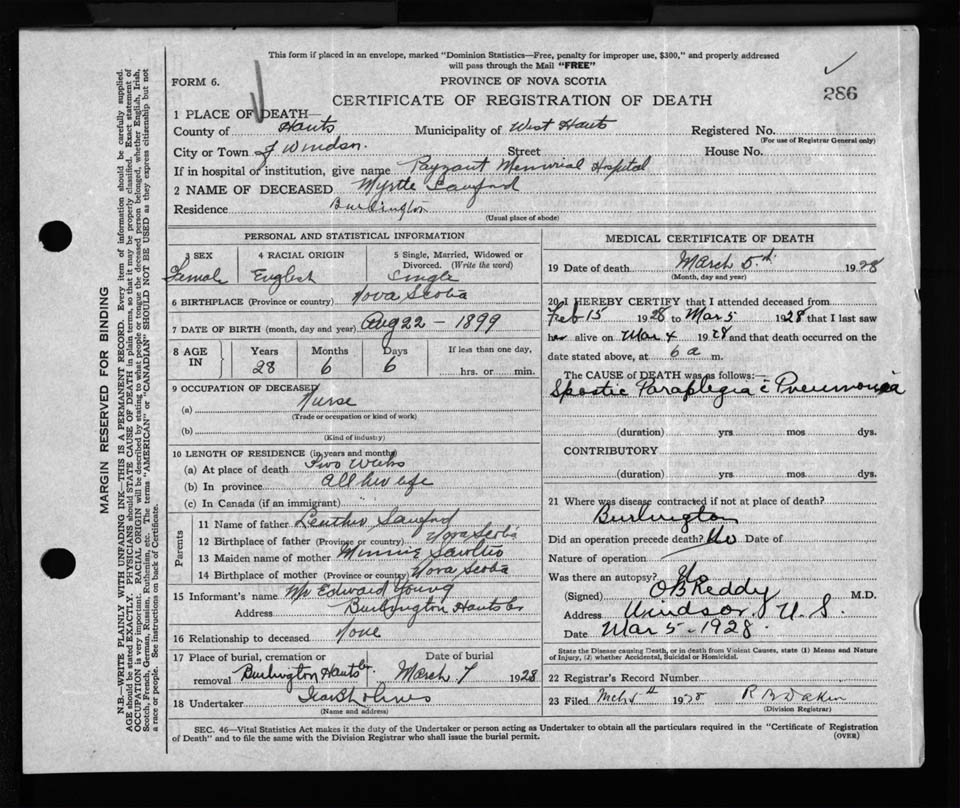 This form if placed in an envelope, marked "Dominion Statistics—Free, penalty for improper use, $300," and properly addressed
will pass through the Mail "FREE"
FORM 6.
PROVINCE OF NOVA SCOTIA
286
CERTIFICATE OF REGISTRATION OF DEATH
1 PLACE OF DEATH—
County of Hants Municipality of West Hants Registered No.
(For use of Registrar General only)
City or Town of Windsor. Street House No.
If in hospital or institution, give name Payzant Memorial Hospital
2 NAME OF DECEASED Myrtle Sanford
Residence Burlington
(Usual place of abode)
PERSONAL AND STATISTICAL INFORMATION
3 SEX 4 RACIAL ORIGIN 5 Single, Married, Widowed or
Divorced. (Write the word)
Female English Single
6 BIRTHPLACE (Province or country) Nova Scotia
7 DATE OF BIRTH (month, day and year) Aug 22 - 1899
8 AGE IN Years Months Days If less than one day,
28 6 6 hrs. or min.
9 OCCUPATION OF DECEASED
(a) Nurse
(Trade or occupation or kind of work)
(b)
(Kind of industry)
10 LENGTH OF RESIDENCE (in years and months)
(a) At place of death Two weeks
(b) In province All her life
(c) In Canada (if an immigrant)
Parents
11 Name of father Sanford
12 Birthplace of father (Province or country) Nova Scotia
13 Maiden name of mother Minnie
14 Birthplace of mother (Province or country) Nova Scotia
15 Informant's name Mr Edward Young
Address Burlington Hants Co
16 Relationship to deceased None
17 Place of burial, cremation or removal Burlington Hants Co Date of burial March 7 1928
18 Undertaker
(Name and address)
MEDICAL CERTIFICATE OF DEATH
19 Date of death March 5th 1928
(Month, day and year)
20 I HEREBY CERTIFY that I attended deceased from
Feb 15 1928 to Mar 5 1928 that I last saw
her alive on Mar 4 1928 and that death occurred on the
date stated above, at 6 a m.
The CAUSE of DEATH was as follows:—
Spastic Paraplegia c̄ Pneumonia
(duration) yrs mos dys.
CONTRIBUTORY
(duration) yrs mos dys.
21 Where was disease contracted if not at place of death?
Burlington
Did an operation precede death? No Date of
Nature of operation
Was there an autopsy? No
(Signed) O B Keddy M.D.
Address Windsor, N.S.
Date Mar 5-1928.
State the Disease causing Death, or in death from Violent Causes, state (1) Means and Nature
of Injury, (2) whether Accidental, Suicidal or Homicidal.
22 Registrar's Record Number
23 Filed Mch 5th 1928 R B Dakin
(Division Registrar)
SEC. 46—Vital Statistics Act makes it the duty of the Undertaker or person acting as Undertaker to obtain all the particulars required in the "Certificate of Registration
of Death" and to file the same with the Division Registrar who shall issue the burial permit.
(OVER)
MARGIN RESERVED FOR BINDING
N.B.—WRITE PLAINLY WITH UNFADING INK—THIS IS A PERMANENT RECORD. Every item of information should be carefully supplied.
AGE should be stated EXACTLY. PHYSICIANS should STATE CAUSE OF DEATH in plain terms, so that it may be properly classified. Exact statement of
OCCUPATION is very important. RACIAL ORIGIN will be described by stating to what people or tongue the deceased person belonged, whether English, Irish,
Scotch, French, German, Russian, Ruthenian, etc. The terms "AMERICAN" or "CANADIAN" SHOULD NOT BE USED as they express citizenship but not
a race or people. See instructions on back of Certificate.